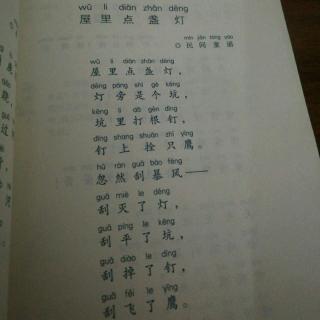 wū li diǎn zhǎn dēng
屋里点盏灯
mín jiān tóng yáo
◎民间童谣
wū li diǎn zhǎn dēng
屋里点盏灯，
dēng páng shì gè kēng
灯旁是个坑，
kēng li dǎ gēn dīng
坑里打根钉，
dīng shang shuān zhī yīng
钉上拴只鹰。
hū rán guā bào fēng
忽然刮暴风——
guā miè le dēng
刮灭了灯，
guā píng le kēng
刮平了坑，
guā diào le dīng
刮掉了钉，
guā fēi le yīng
刮飞了鹰。